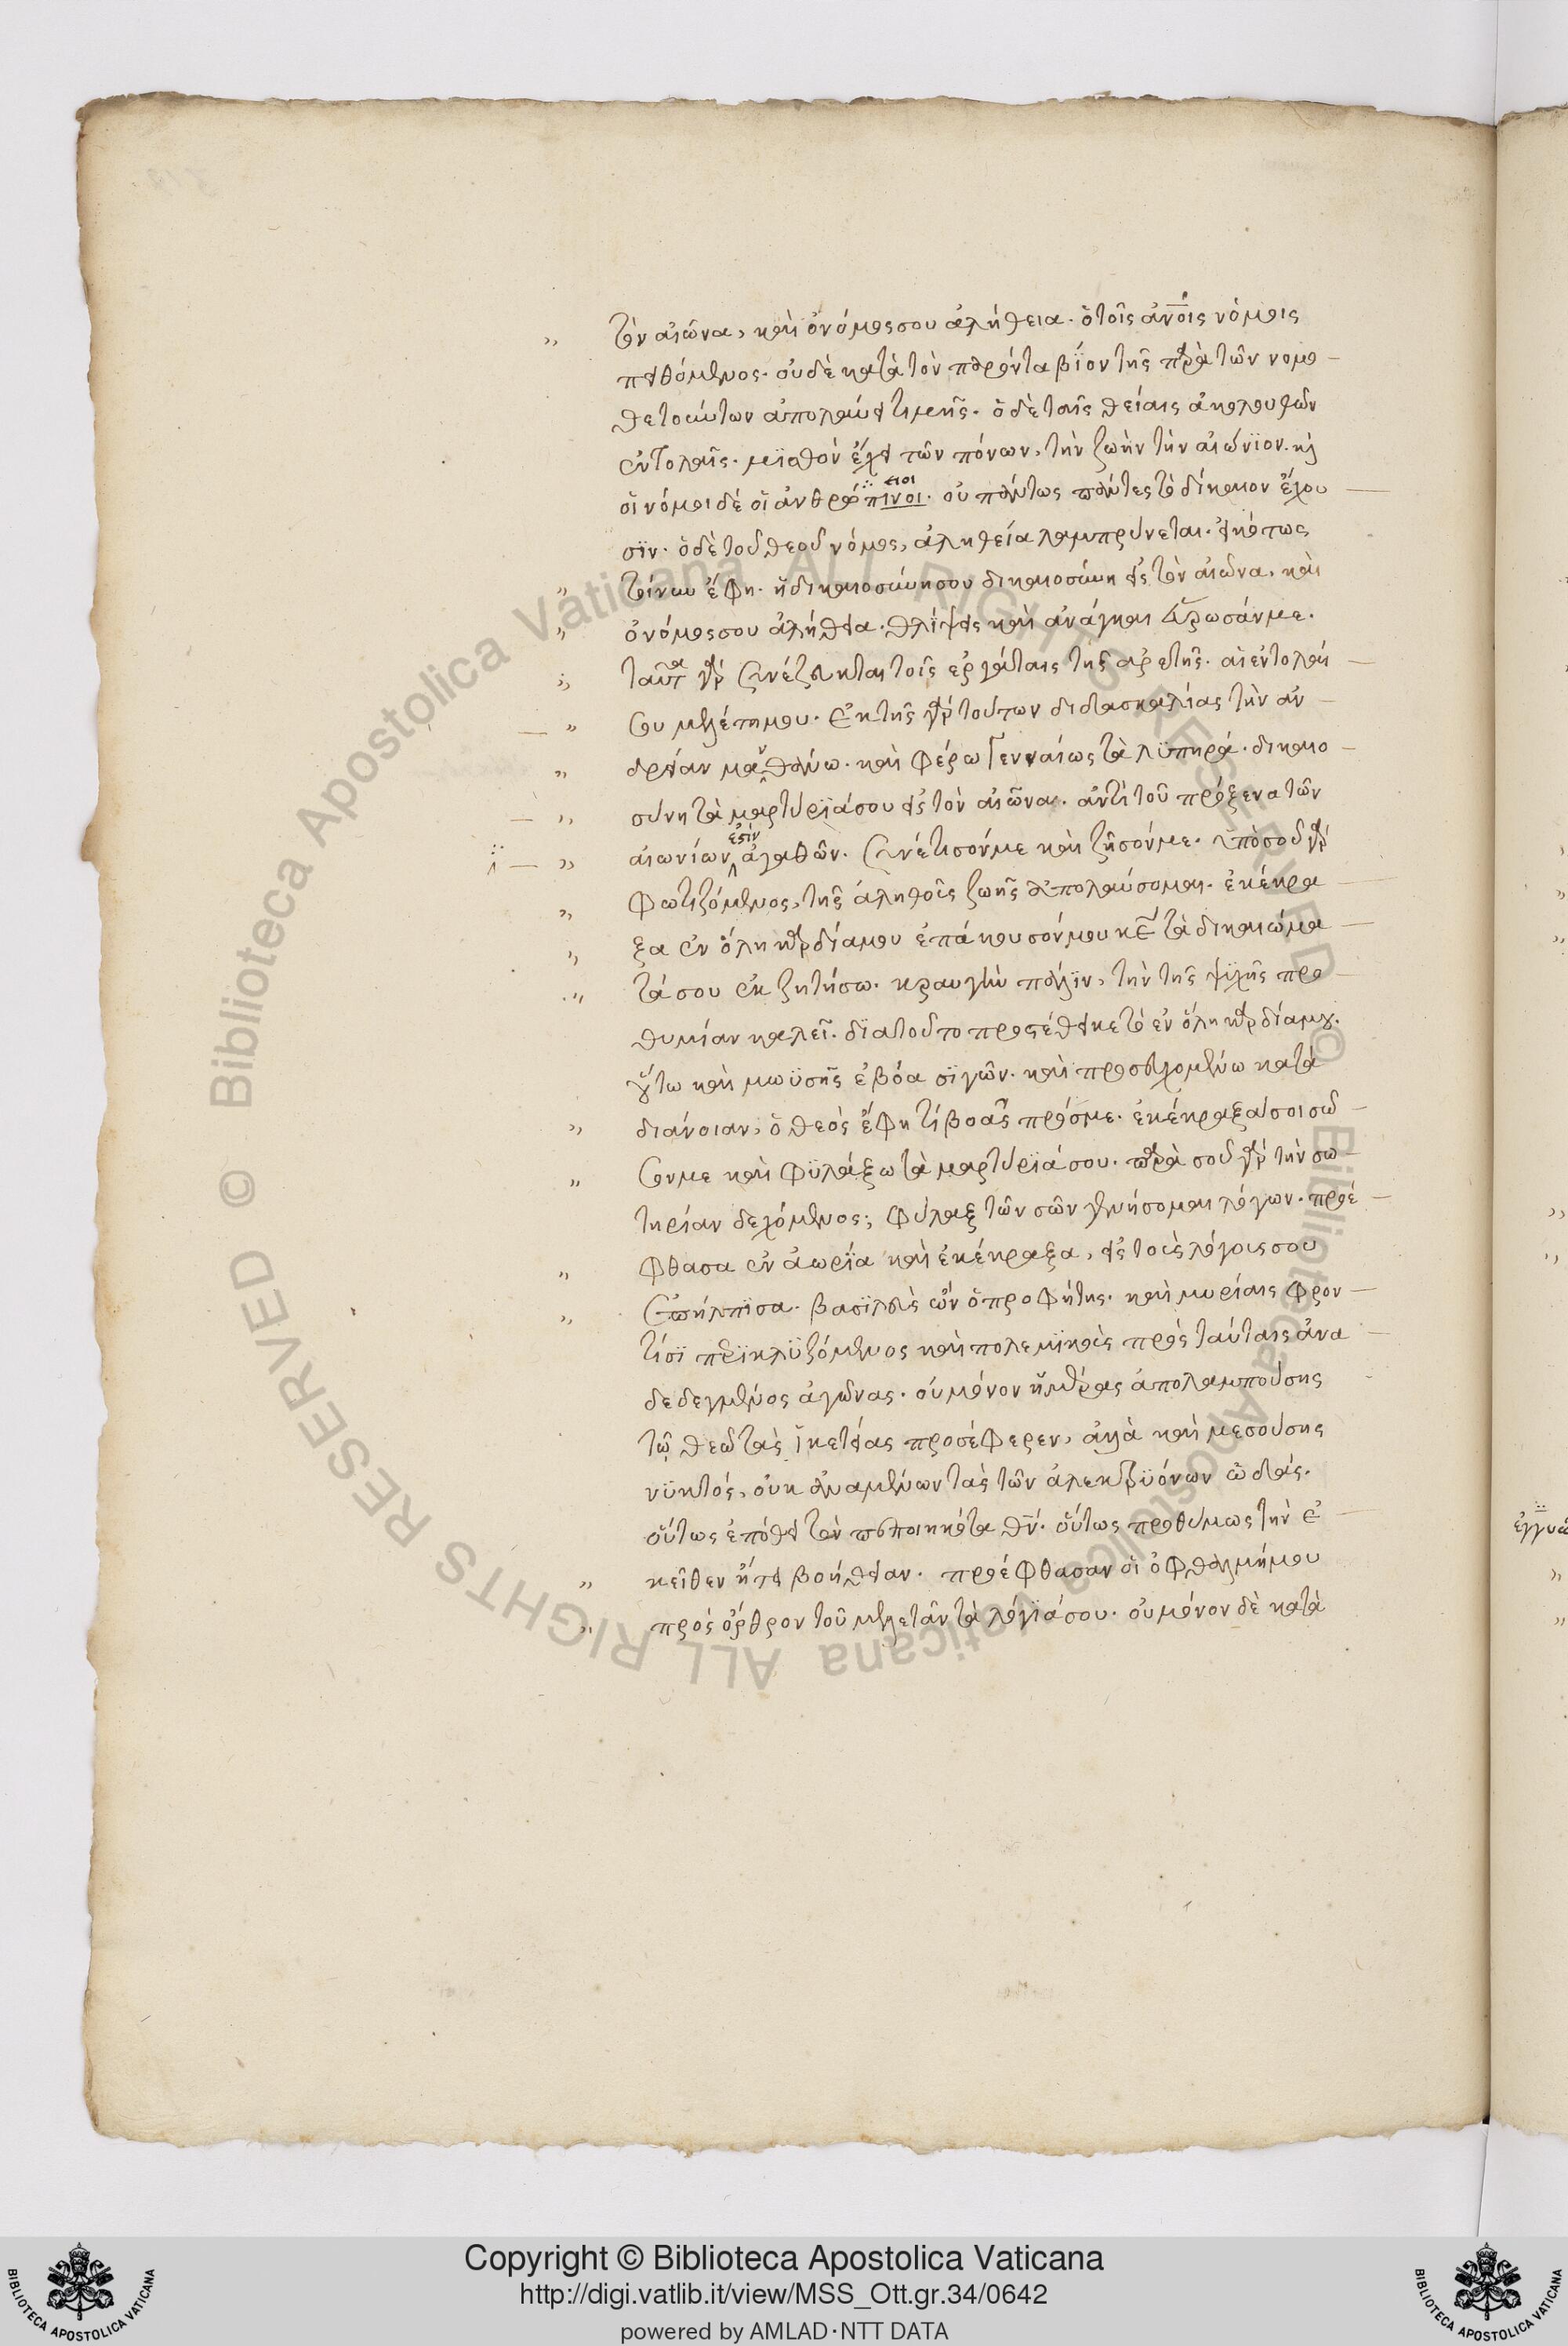 τὸν αἰῶνα, καὶ ὁ νόμος σου ἀλήθεια. ὁ τοῖς ἀν̅οις νόμοις
πειθόμενος. οὐδὲ κατὰ τὸν παρόντα βίον τῆς παρὰ τῶν νομο
θετούντων ἀπολαύει τιμῆς. ὁ δὲ ταῖς θείαις ἀκολουθῶν
ἐντολαῖς. μισθὸν ἔχει τῶν πόνων, τὴν ζωὴν τὴν αἰώνιον. καὶ
οἱ νόμοι δέ οἱ ἀνθρώπινοι. οὐ πάντως πάντες τὸ δίκαιον ἔχου
ειοι
σϊν. ὁ δὲ τοῦ θεοῦ νόμος, ἀληθεία λαμπρύνεται. εἰκότως
τοίνυν ἔφη. ἡ δικαιοσύνη σου δικαιοσύνη εἰς τὸν αἰῶνα, καὶ
ὁ νόμος σου ἀλήθεια. θλίψεις καὶ ἀνάγκαι εὕρωσάν με.
ταῦτα γὰρ συνέζευκται τοῖς ἐργάταις τῆς ἀρετῆς. αἱ ἐντολαί
σου μελέτη μου. ἐκ τῆς γὰρ τούτων διδασκαλίας τὴν ἀν
δρείαν μανθάνω. καὶ φέρω γενναίως τὰ λϋπηρά. δικαιο
σύνη τὰ μαρτύρϊά σου εἰς τὸν αἰῶνα. ἀντὶ τοῦ πρόξενα τῶν
αἰωνίων ἐστὶν ἀγαθῶν. συνέτισόν με καὶ ζῆσόν με. ὑπὸ σοῦ γὰρ
φωτιζόμενος, τῆς ἀληθοῦς ζωῆς ἀπολαύσομαι. ἐκέκρα
ξα ἐν ὅλῃ καρδία μου ἐπάκουσόν μου κε̅ τὰ δικαιώμα
τά σου ἐκζητήσω. κραυγὴν πάλιν, τὴν τῆς ψϋχῆς προ
θυμίαν καλεῖ. διατοῦτο προστέθεικε τὸ ἐν ὅλη καρδία μου.
οὕτω καὶ μωϋσῆς ἐβόα σϊγῶν. καὶ προσευχομένω κατὰ
διάνοιαν, ὁ θεὸς ἔφη τί βοᾶς πρός με. ἐκέκραξα σοι σῶ
σον με καὶ φϋλάξω τὰ μαρτύρϊά σου. παρὰ σοῦ γὰρ τὴν σω
τηρίαν δεχόμενος; φύλαξ τῶν σῶν γενήσομαι λόγων. προέ
φθασα ἐν ἀωρία καὶ ἐκέκραξα, εἰς τοὺς λόγους σου
ἐπήλπϊσα. βασϊλεὺς ὢν ὁ προφήτης. καὶ μυρίαις φρον
τίσϊ περικλϋζόμενος καὶ πολεμϊκοὺς πρὸς ταύταις ἀνα
δεδεγμένος ἀγῶνας. οὐ μόνον ἡμέρας ἀπολαμπούσης
τῷ θεῷ τὰς ἱκετείας προσέφερεν, ἀλλὰ καὶ μεσούσης
νϋκτός, οὐκ ἀναμένων τὰς τῶν ἀλεκτρϋόνων ὠδάς.
οὕτως ἐπόθει τὸν πεποιηκότα θν̅. οὕτως προθύμως τὴν ἐ
κεῖθεν ᾔτει βοήθειαν. προέφθασαν οἱ ὀφθαλμοί μου
πρὸς ὄρθρον τοῦ μελετᾶν τὰ λόγϊά σου. οὐ μόνον δὲ κατὰ
Copyright © Biblioteca Apostolica Vaticana
http://digi.vatlib.it/view/MSS_Ott.gr.34/0642
powered by AMLAD·NTT DATA